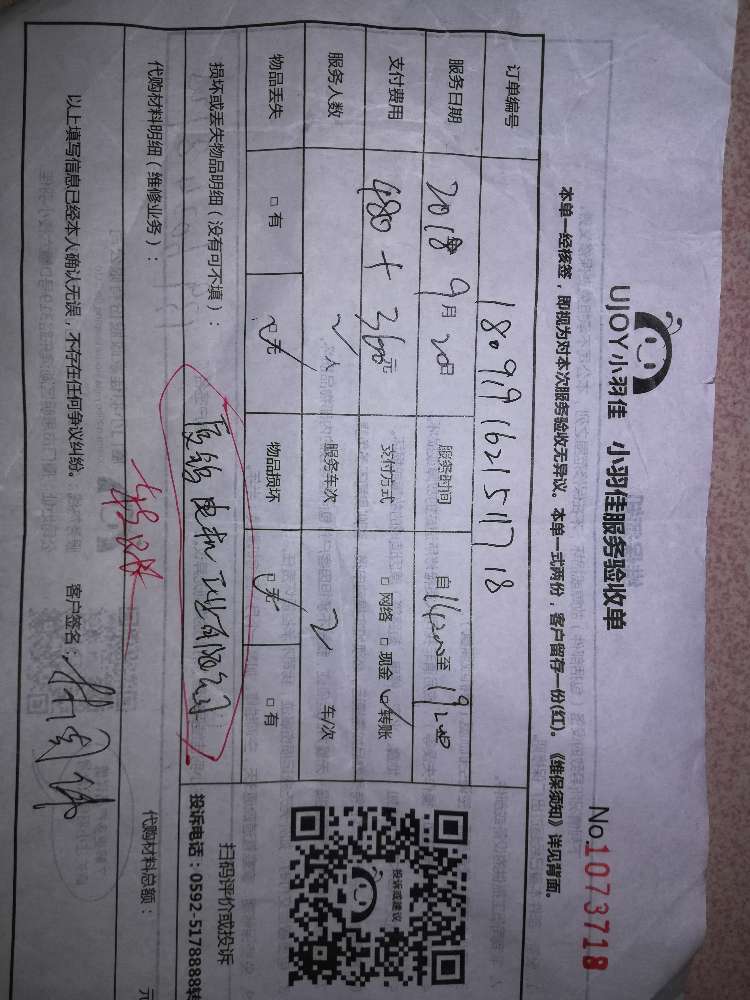 UJOY小羽佳 小羽佳服务验收单
No.1073718
本单一经核签，即视为对本次服务验收无异议。本单一式两份，客户留存一份(红)。《维保须知》详见背面。
订单编号 180919162151718
服务日期 2018年9月20日 服务时间 自14:00至19:00
支付费用 480+360元 支付方式 □网络 □现金 ☑转账
服务人数 2人 服务车次 2 车/次
物品丢失 □有 ☑无 物品损坏 ☑无 □有
损坏或丢失物品明细（没有可不填）：
厦钨电机工业有限公司
代购材料明细（维修业务）：
代购材料总额： 元
以上填写信息已经本人确认无误，不存在任何争议纠纷。 客户签名：
投诉或建议
扫码评价或投诉
投诉电话：0592-5178888转